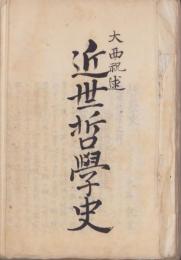 大西祝述
近世哲學史